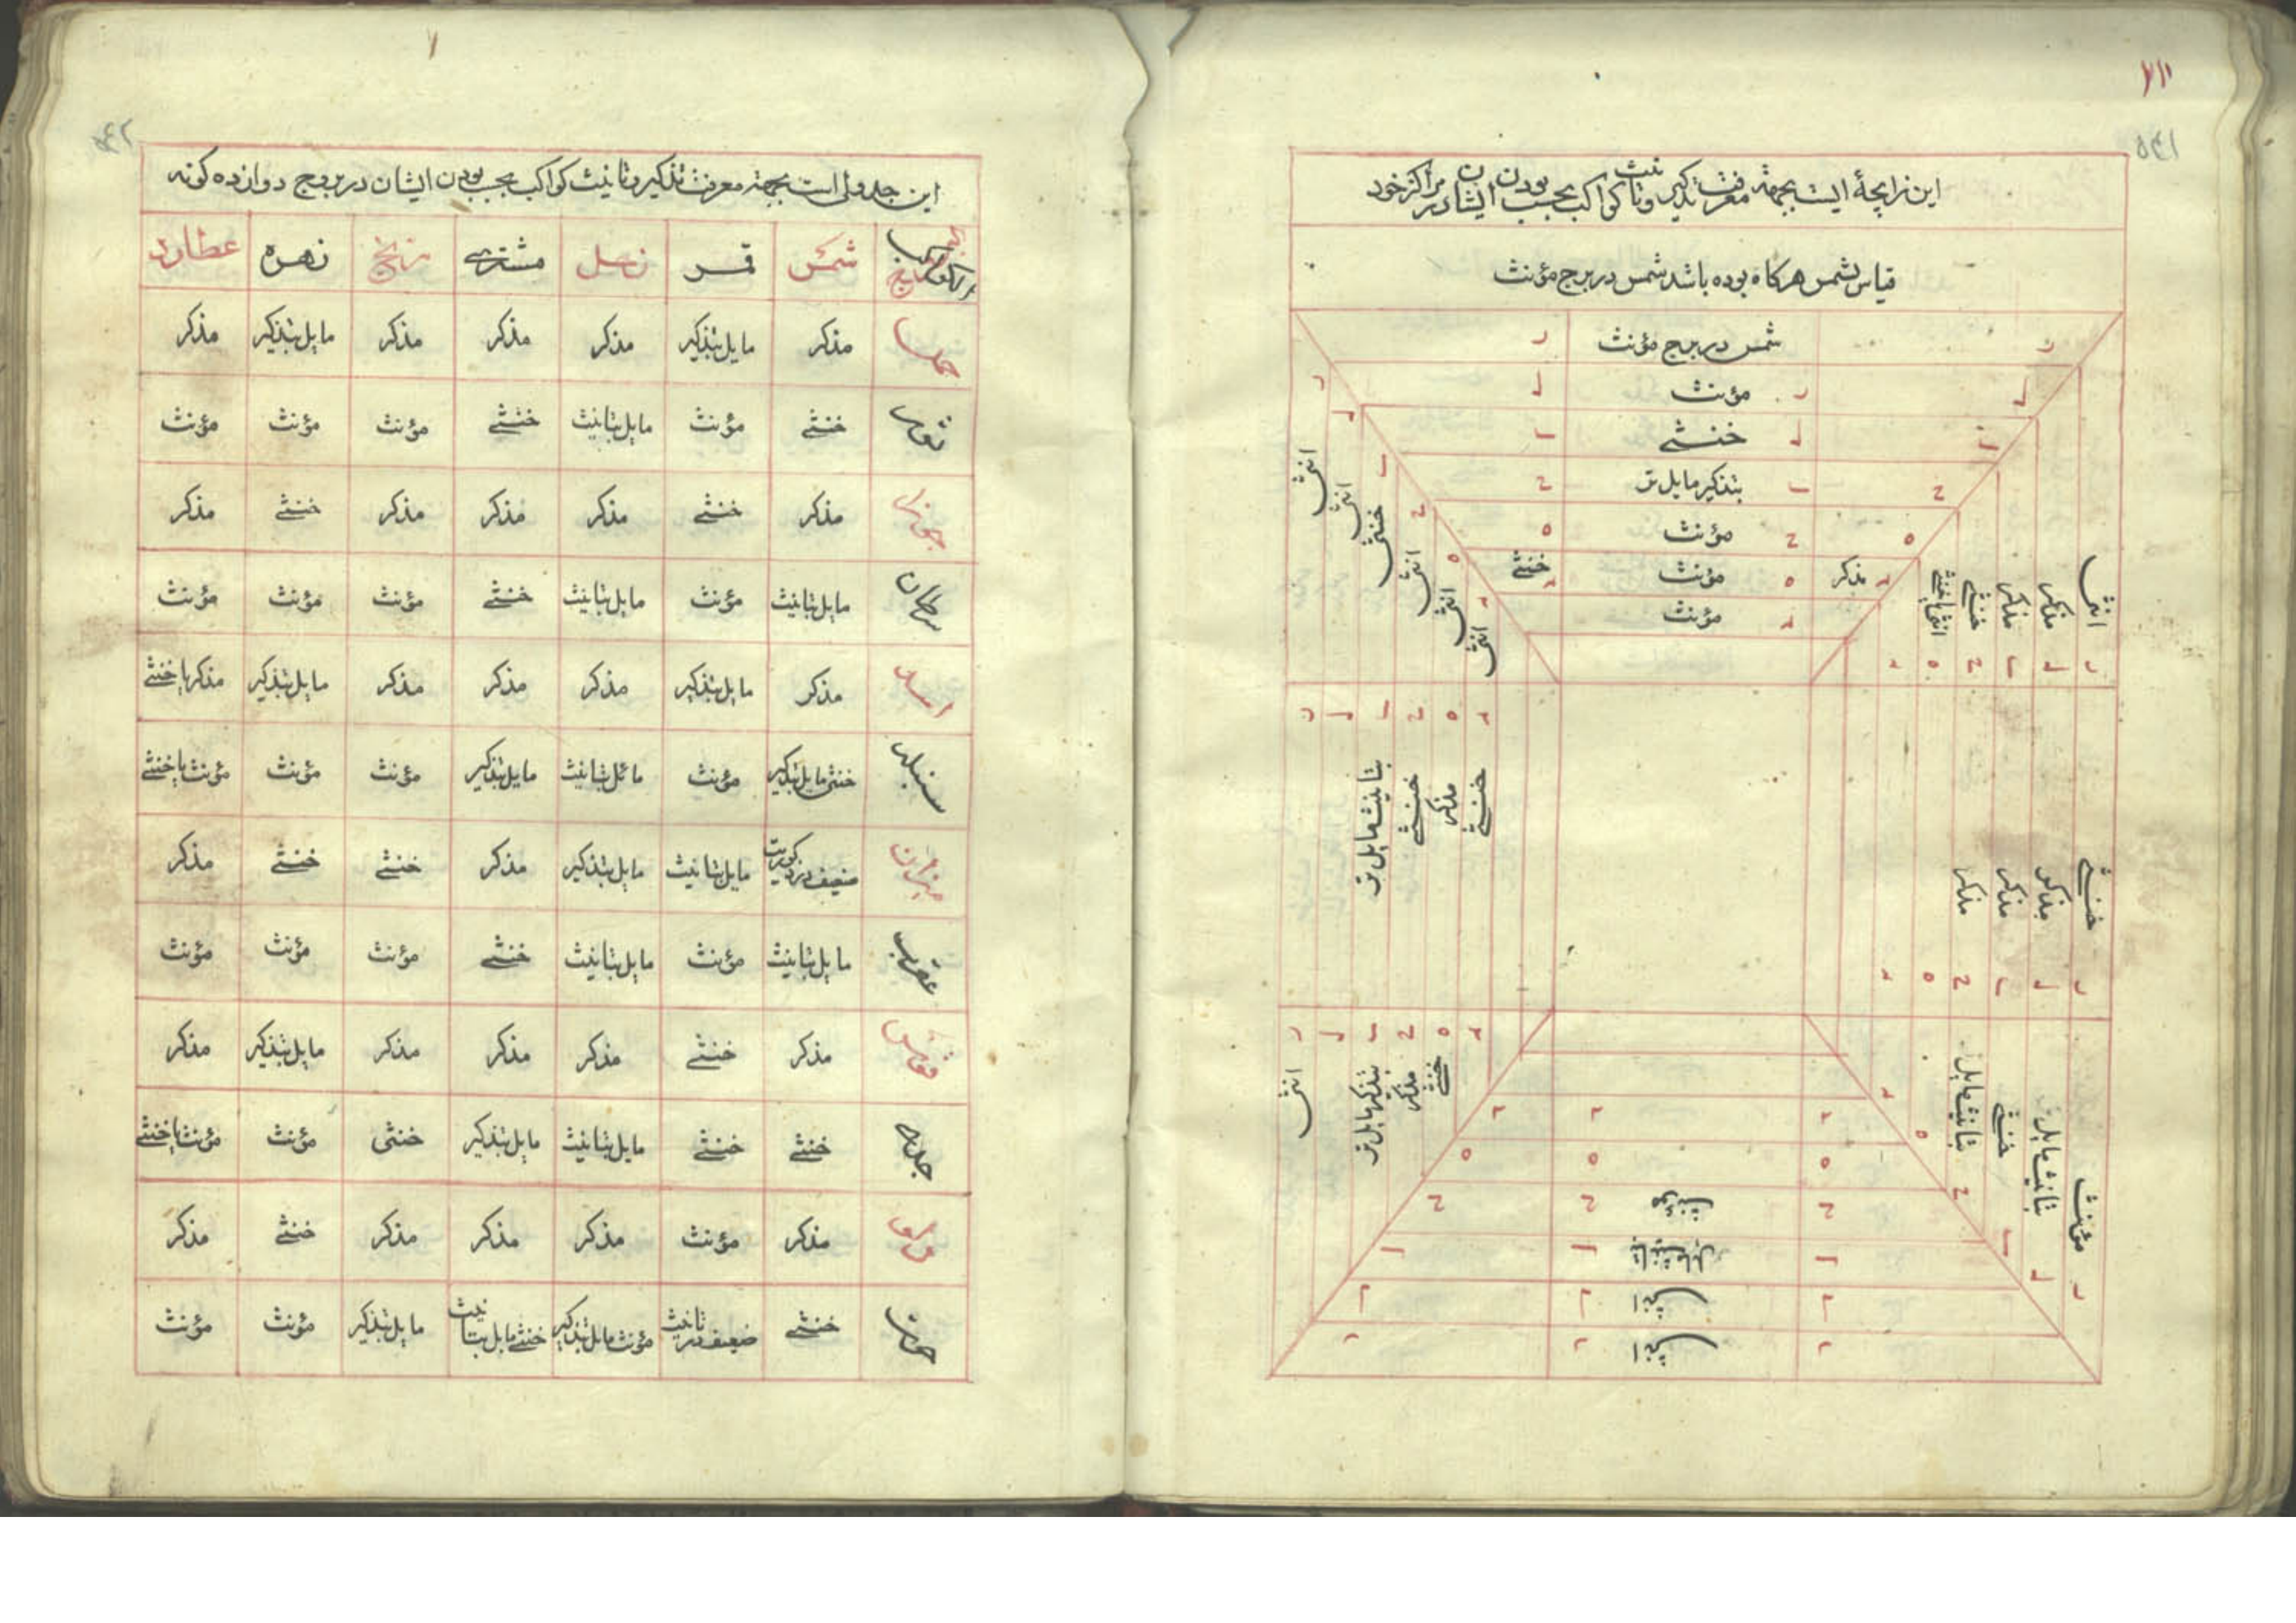 این زایچهٔ ایست بجهة معرفت تذکیر و تانیث کواکب بحسب بودن ایشان در مراکز خود
قیاس بشمس هرکاه بوده باشد شمس در برج مؤنث
شمس در برج مؤنث
مؤنث
خنثی
بتذکیر مایل تر
مؤنث
خنثی مؤنث مذکر
مؤنث
انثی مذکر مذکر خنثی
انثی انثی خنثی انثی انثی انثی
خنثی مذکر مذکر مذکر
خنثی مذکر خنثی بتانیث مایل تر
مؤنث بتانیث مایل خنثی بتانیث مایل
خنثی مذکر بتذکیر مایل تر انثی
این جدولی است بجهة معرفت تذکیر و تانیث کواکب بحسب بودن ایشان در بروج دوازده کونه
شمس قمر زحل مشتری مریخ زهره عطارد
حمل مذکر مایل بتذکیر مذکر مذکر مذکر مایل بتذکیر مذکر
ثور خنثی مؤنث مایل بتانیث خنثی مؤنث مؤنث مؤنث
جوزا مذکر خنثی مذکر مذکر مذکر خنثی مذکر
سرطان مایل بتانیث مؤنث مایل بتانیث خنثی مؤنث مؤنث مؤنث
اسد مذکر مایل بتذکیر مذکر مذکر مذکر مایل بتذکیر مذکر یا خنثی
سنبله خنثی مایل بتذکیر مؤنث مائل بتانیث مایل بتذکیر مؤنث مؤنث مؤنث یا خنثی
میزان ضعیف در ذکوریت مایل بتانیث مایل بتذکیر مذکر خنثی خنثی مذکر
عقرب مایل بتانیث مؤنث مایل بتانیث خنثی مؤنث مؤنث مؤنث
قوس مذکر خنثی مذکر مذکر مذکر مایل بتذکیر مذکر
جدی خنثی خنثی مایل بتانیث مایل بتذکیر خنثی مؤنث مؤنث یا خنثی
دلو مذکر مؤنث مذکر مذکر مذکر خنثی مذکر
حوت خنثی ضعیف در تانیث مؤنث مایل بتذکیر خنثی مایل بتانیث مایل بتذکیر مؤنث مؤنث